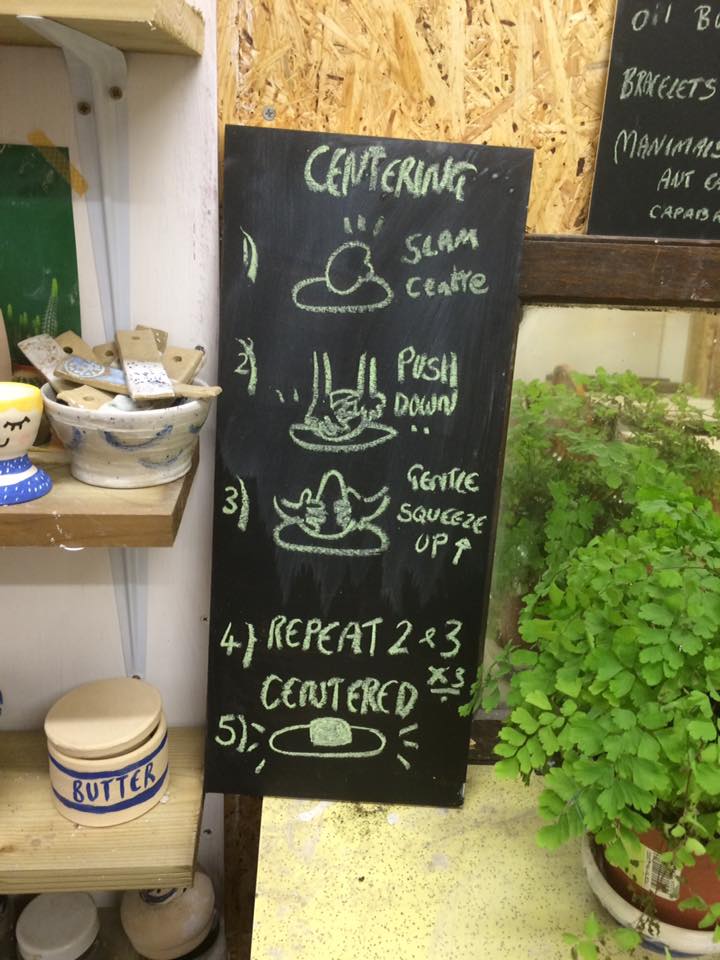 CENTERING
1) SLAM
CENTRE
2) PUSH
DOWN
3) GENTLE
SQUEEZE
UP ↑
4) REPEAT 2 & 3
x3
CENTERED
5)
BUTTER
OIL BU
BRACELETS
MANIMALS
ANT E
CAPABR